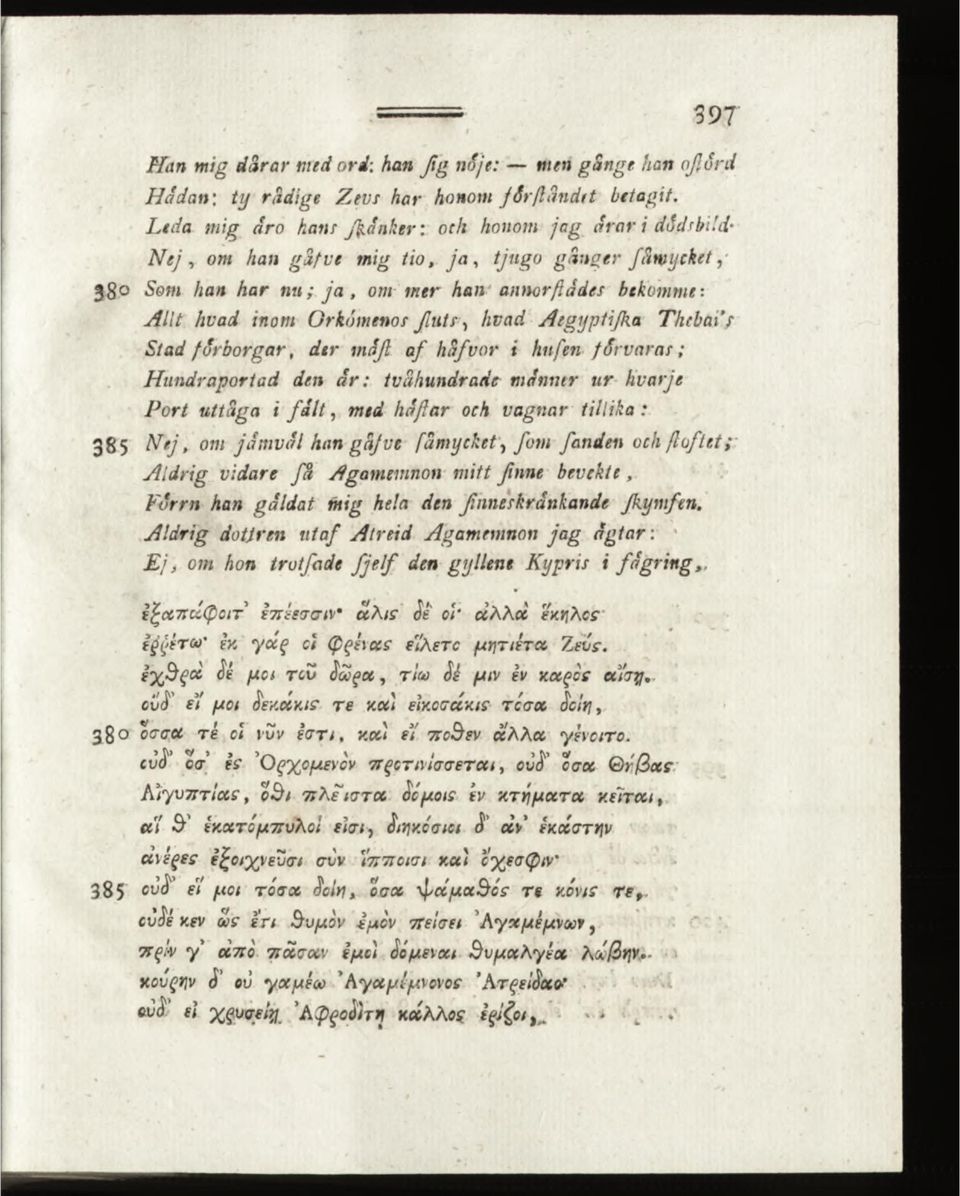 397
Han mig dårar med ord: han ſig nöje: — men gånge han oſtörd
Hädan: ty rådige Zevs har honom förſtåndet betagit.
Leda mig äro hans ſkänker: och honom jag ärar i dödsbild.
Nej, om han gåfve mig tio, ja, tjugo gånger ſåmycket,
380 Som han har nu; ja, om mer han annorſtädes bekomme:
Allt hvad inom Orkómenos ſluts, hvad Aegyptiſka Thebai's
Stad förborgar, der mäſt af håfvor i huſen förvaras;
Hundraportad den är: tvåhundrade männer ur hvarje
Port uttåga i fält, med häſtar och vagnar tillika:
385 Nej, om jämväl han gåfve ſåmycket, ſom ſanden och ſtoftet;
Aldrig vidare ſå Agamemnon mitt ſinne beveckte,
Förrn han gäldat mig hela den ſinneskränkande ſkymfen.
Aldrig dottren utaf Atreid Agamemnon jag ägtar:
Ej, om hon trotſade ſjelf den gyllene Kypris i fägring,
ἐξαπάφοιτ' ἐπέεσσιν· ἅλις δέ οἱ· ἀλλὰ ἕκηλος
ἐῤῥέτω· ἐκ γάρ οἱ φρένας εἵλετο μητιέτα Ζεύς.
ἐχθρὰ δέ μοι τοῦ δῶρα, τίω δέ μιν ἐν καρὸς αἴσῃ.
οὐδ' εἴ μοι δεκάκις τε καὶ εἰκοσάκις τόσα δοίη,
380 ὅσσα τέ οἱ νῦν ἐστι, καὶ εἴ ποθεν ἄλλα γένοιτο.
οὐδ' ὅσ' ἐς Ὀρχομενὸν προτινίσσεται, οὐδ' ὅσα Θήβας
Αἰγυπτίας, ὅθι πλεῖστα δόμοις ἐν κτήματα κεῖται,
αἵ θ' ἑκατόμπυλοί εἰσι, διηκόσιοι δ' ἀν' ἑκάστην
ἀνέρες ἐξοιχνεῦσι σὺν ἵπποισι καὶ ὄχεσφιν·
385 οὐδ' εἴ μοι τόσα δοίη, ὅσα ψάμαθός τε κόνις τε,
οὐδέ κεν ὣς ἔτι θυμὸν ἐμὸν πείσει Ἀγαμέμνων,
πρίν γ' ἀπὸ πᾶσαν ἐμοὶ δόμεναι θυμαλγέα λώβην.
κούρην δ' οὐ γαμέω Ἀγαμέμνονος Ἀτρείδαο·
οὐδ' εἰ χρυσείῃ Ἀφροδίτῃ κάλλος ἐρίζοι,